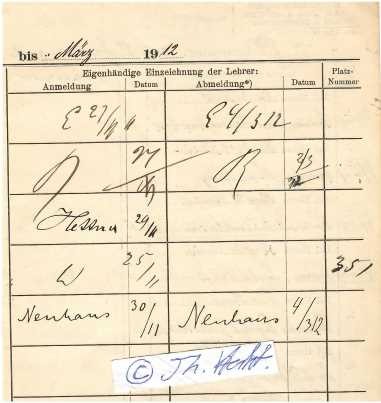 bis März 1912
Eigenhändige Einzeichnung der Lehrer:
Platz-
Nummer
Anmeldung Datum Abmeldung*) Datum
E 27/11 11 E 4/3 12
R 2/3
12
Hessner 29/11
W 25/11 351
Neuhaus 30/11 Neuhaus 4/3 12
© Th.